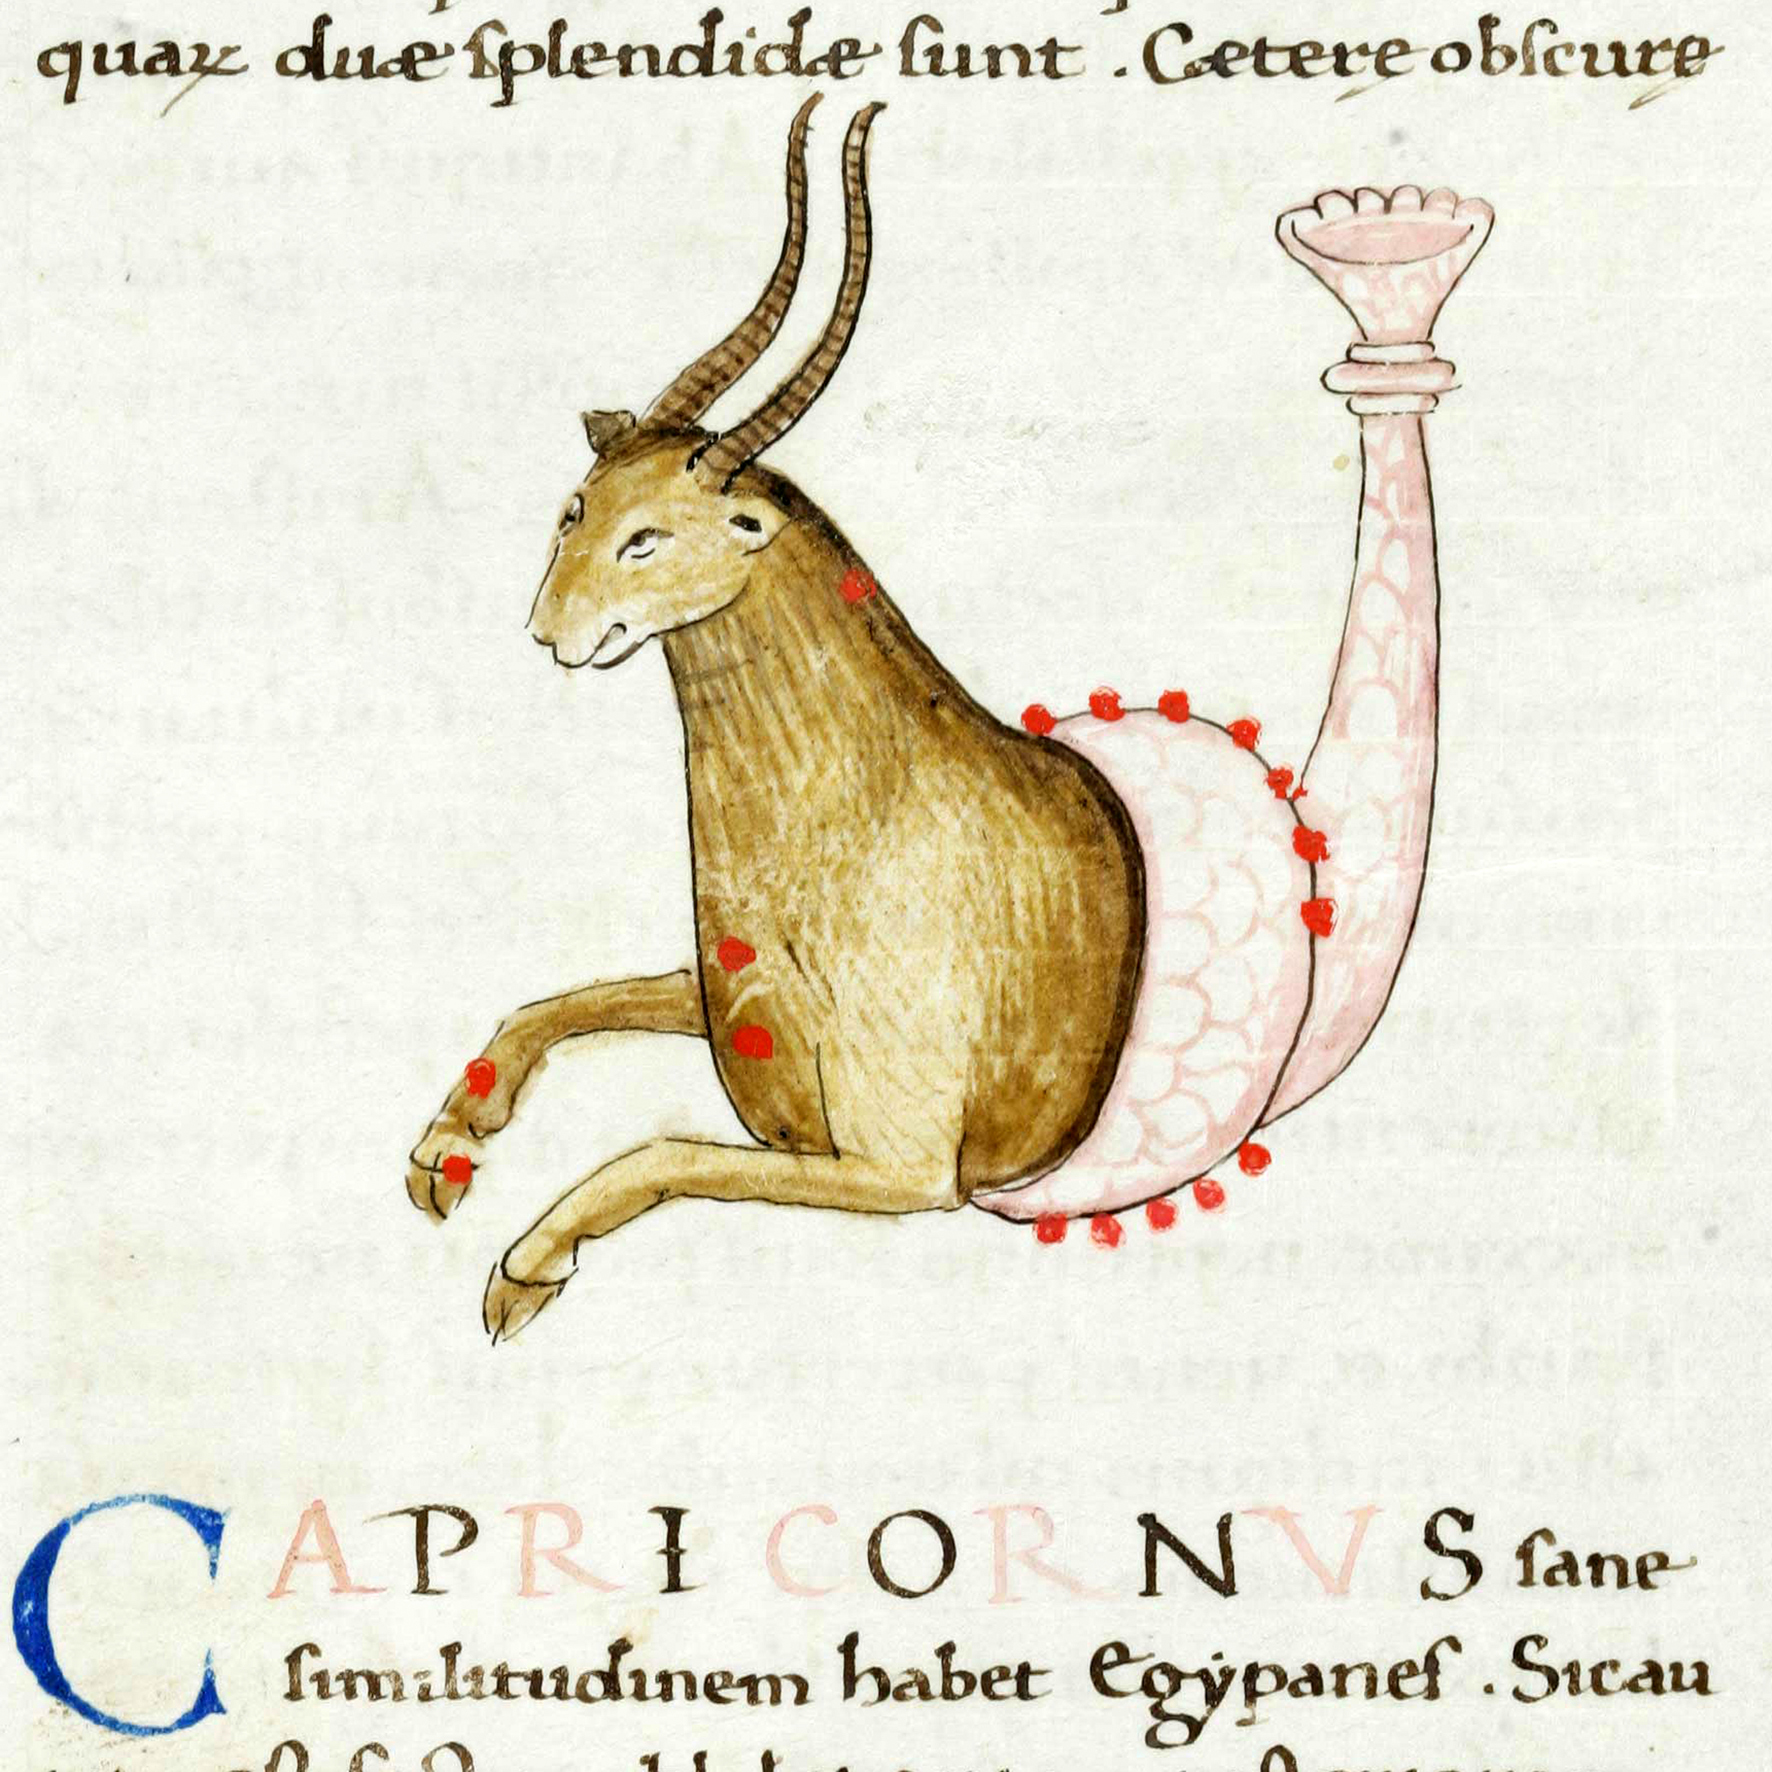 quaꝝ duæ ſplendidæ ſunt . Cæterę obſcurę
CAPRICORNVS ſane
ſimilitudinem habet Egẏpaneſ . Sicau